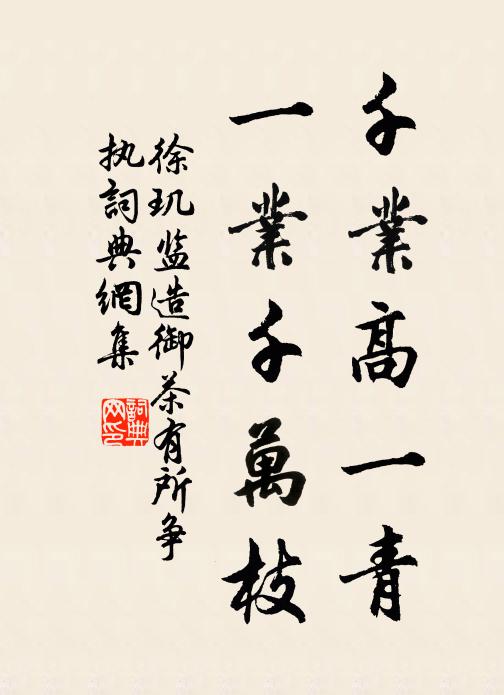 千業高一青
一業千萬枝
徐玑监造御茶有所争
执詞典網集
詞典
网印